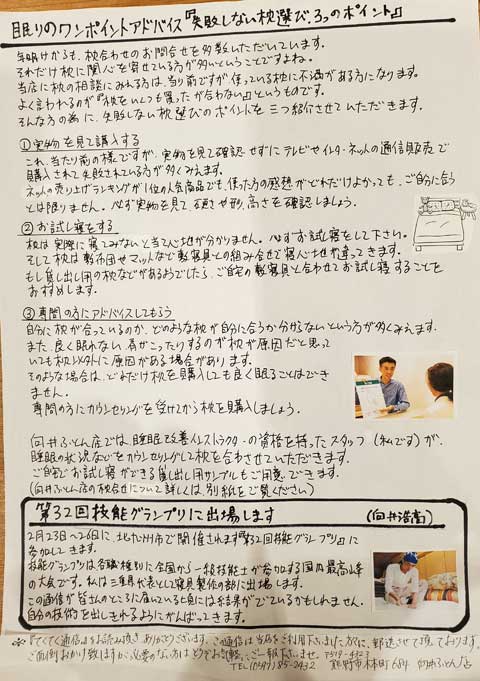 眠りのワンポイントアドバイス『失敗しない枕選び、3つのポイント』
年明けからも、枕合わせのお問合せを多数いただいています。
それだけ枕に関心を寄せている方が多いということですよね。
当店に枕の相談にみえる方は、当り前ですが使っている枕に不満がある方になります。
よく言われるのが『枕をいくつも買ったが合わない。』というものです。
そんな方の為に、失敗しない枕選びのポイントを三つ紹介させていただきます。
①実物を見て購入する
これ、当たり前の様ですが、実物を見て確認せずにテレビやインターネットの通信販売で
購入されて失敗されている方が多くみえます。
ネットの売り上げランキングが1位の人気商品でも、使った方の感想がどれだけよかっても、ご自分に合う
とは限りません。必ず実物を見て、硬さや形、高さを確認しましょう。
②お試し寝をする
枕は実際に寝てみないと当て心地が分かりません。必ずお試し寝をして下さい。
そして枕は敷布団やマットなど敷寝具との組み合せで寝心地が変ってきます。
もし貸し出し用の枕などがあるようでしたら、ご自宅の敷寝具と合わせてお試し寝することを
おすすめします。
③専門の方にアドバイスしてもらう
自分に枕が合っているのか、どのような枕が自分に合うか分からないという方が多くみえます。
また、良く眠れない、肩がこったりするのが枕が原因だと思って
いても枕以外に原因がある場合があります。
そのような場合は、どれだけ枕を購入しても良く眠ることはでき
ません。
専門の方にカウンセリングを受けてから枕を購入しましょう。
向井ふとん店では、睡眠改善インストラクターの資格を持ったスタッフ(私です)が、
睡眠の状況などをカウンセリングして枕を合わさせていただきます。
ご自宅でお試し寝ができる貸し出し用サンプルもご用意できます。
(向井ふとん店の枕合せについて詳しくは、別紙をご覧ください)
第32回技能グランプリに出場します
(向井浩高)
2月23日~26日に、北九州市で開催されます『第32回技能グランプリ』に
参加してきます。
技能グランプリは各職種別に全国から一級技能士が参加する国内最高峰
の大会です。私は三重県代表として寝具製作の部に出場します。
この通信が皆さんのところに届いている頃には結果がでているかもしれません。
自分の技術を出しきれるようにがんばってきます。
※『てくてく通信』をお読み頂きありがとうございます。この通信は当店をご利用下さいました方に、郵送させて頂いております。
ご面倒おかけ致しますが、必要のない方はどうぞお気軽にご一報下さいませ。〒519-4323
TEL(0597)85-2432 熊野市木本町684 向井ふとん店